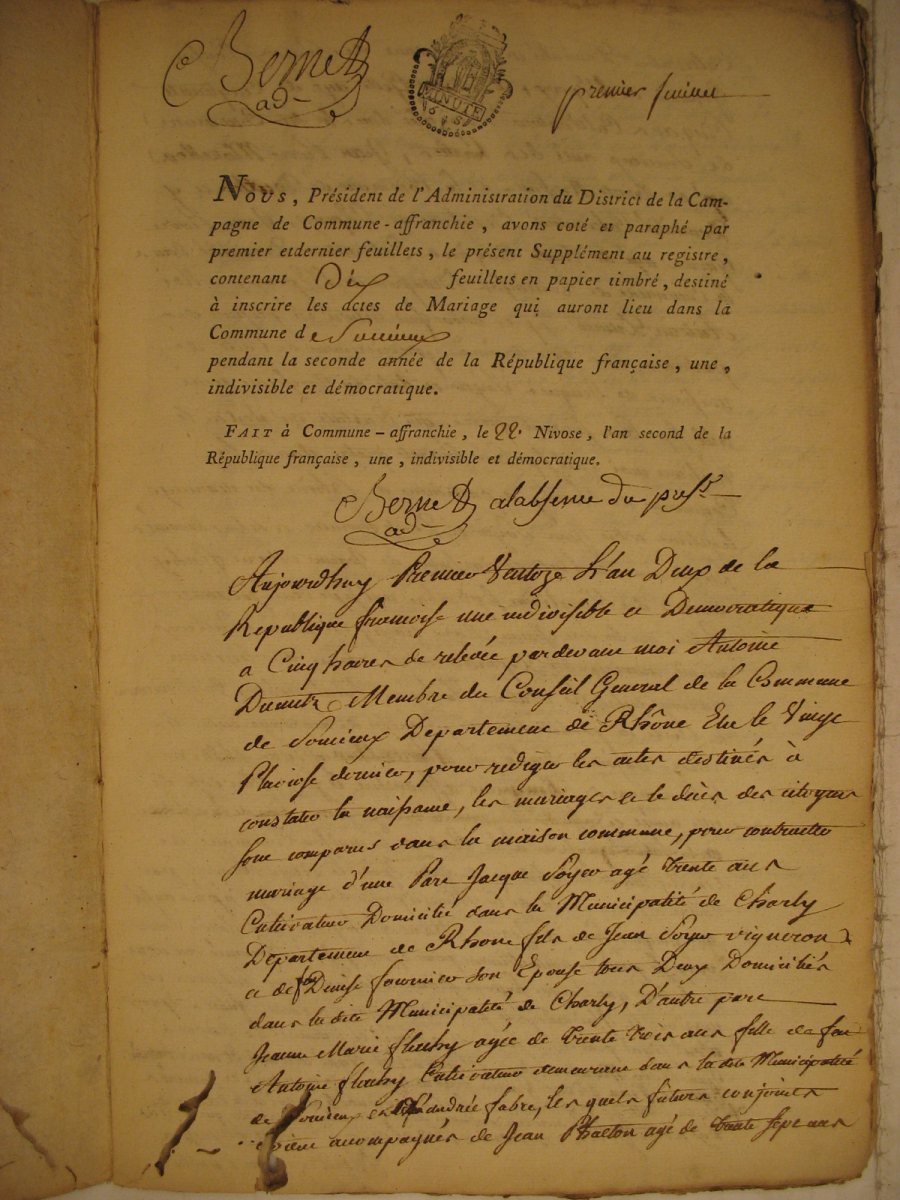 Bernet
ad
MINUTE
premier feuillet
NOUS, Président de l'Administration du District de la Cam-
pagne de Commune-affranchie, avons coté et paraphé par
premier etdernier feuillets, le présent Supplément au registre,
contenant Dix feuillets en papier timbré, destiné
à inscrire les actes de Mariage qui auront lieu dans la
Commune de Soucieux
pendant la seconde année de la République française, une,
indivisible et démocratique.
FAIT à Commune-affranchie, le 22. Nivose, l'an second de la
République française, une, indivisible et démocratique.
Bernet alabsence du presdt
ad
Aujourdhuy Premier Ventoze L'an Deux de la
Republique francoise une indivisible et Democratique
a Cinq heures de relevée pardevant moi Antoine
Membre du Conseil General de la Commune
de Soucieux Departement de Rhône Elu le Vingt
Pluviose dernier, pour rediger les actes destinés à
constater la naissance, les mariages et le décès des citoyens
sont comparus dans la maison commune, pour contracter
mariage d'une Part Jacque agé trente ans
Cultivateur Domicilié dans la Municipalité de Charly
Departement de Rhone fils de Jean vigneron
et de Denise fournier son Epouse tous Deux Domiciliés
dans la dite Municipalité de Charly, D'autre part
Jeanne Marie agée de trente trois ans fille de feu
Antoine Cultivateur demeurant dans la dite Municipalité
de Soucieux et andrée fabre, les quels futurs conjoints
etoient acompagnés de Jean agé de trente sept ans